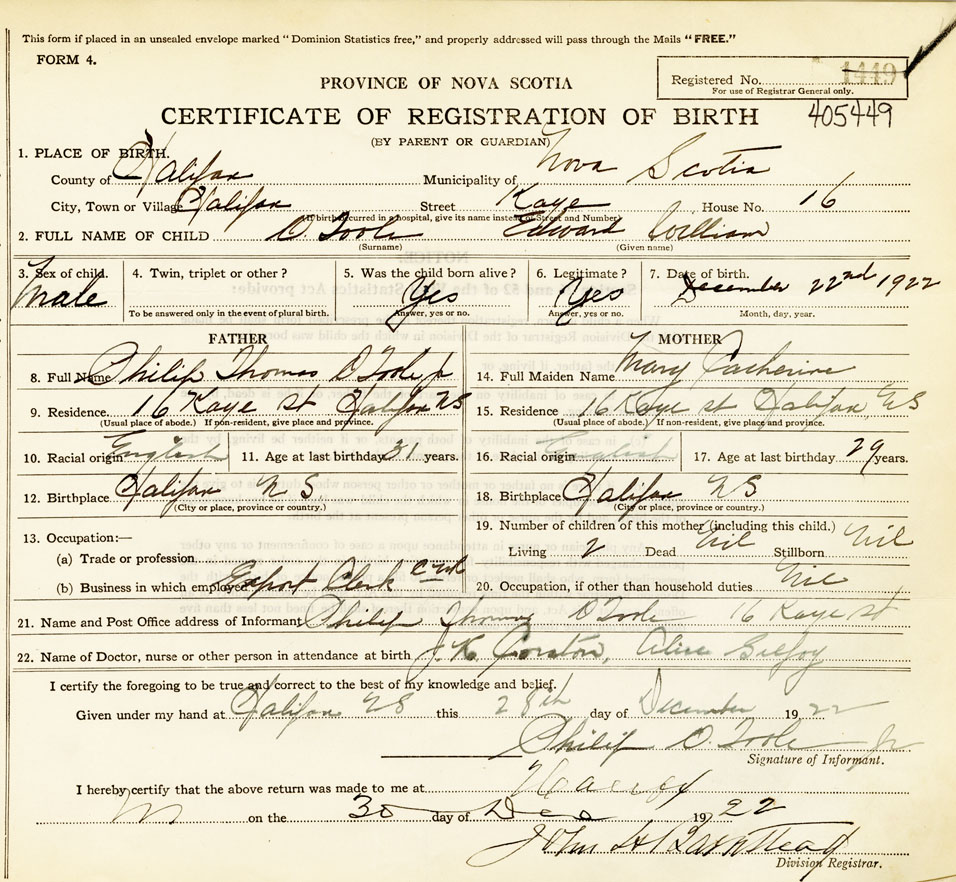 This form if placed in an unsealed envelope marked "Dominion Statistics free," and properly addressed will pass through the Mails "FREE."
FORM 4.
PROVINCE OF NOVA SCOTIA
Registered No. 1449
For use of Registrar General only.
CERTIFICATE OF REGISTRATION OF BIRTH
405449
(BY PARENT OR GUARDIAN)
1. PLACE OF BIRTH.
County of Halifax Municipality of Nova Scotia
City, Town or Village Halifax Street Kaye House No. 16
(If birth occurred in a hospital, give its name instead of Street and Number)
2. FULL NAME OF CHILD O'Toole Edward William
(Surname) (Given name)
3. Sex of child. 4. Twin, triplet or other? 5. Was the child born alive? 6. Legitimate? 7. Date of birth.
Male Yes Yes December 22nd 1922
To be answered only in the event of plural birth. Answer, yes or no. Answer, yes or no. Month, day, year.
FATHER MOTHER
8. Full Name Philip Thomas O'Toole jr
14. Full Maiden Name Mary Catherine
9. Residence. 16 Kaye st Halifax NS
15. Residence 16 Kaye st Halifax NS
(Usual place of abode.) If non-resident, give place and province. (Usual place of abode.) If non-resident, give place and province.
10. Racial origin English 11. Age at last birthday 31 years.
16. Racial origin English 17. Age at last birthday 29 years.
12. Birthplace Halifax N S
18. Birthplace Halifax NS
(City or place, province or country.) (City or place, province or country.)
13. Occupation:—
19. Number of children of this mother (including this child.)
(a) Trade or profession
Living 2 Dead Nil Stillborn Nil
(b) Business in which employed Export Clerk
20. Occupation, if other than household duties Nil
21. Name and Post Office address of Informant Philip Thomas O'Toole 16 Kaye st
22. Name of Doctor, nurse or other person in attendance at birth J. K. Corston, Alice
I certify the foregoing to be true and correct to the best of my knowledge and belief.
Given under my hand at Halifax NS this 28th day of December 1922
Philip O'Toole Jr
Signature of Informant.
I hereby certify that the above return was made to me at Halifax
on the 30 day of Dec 1922
John H Barnstead
Division Registrar.